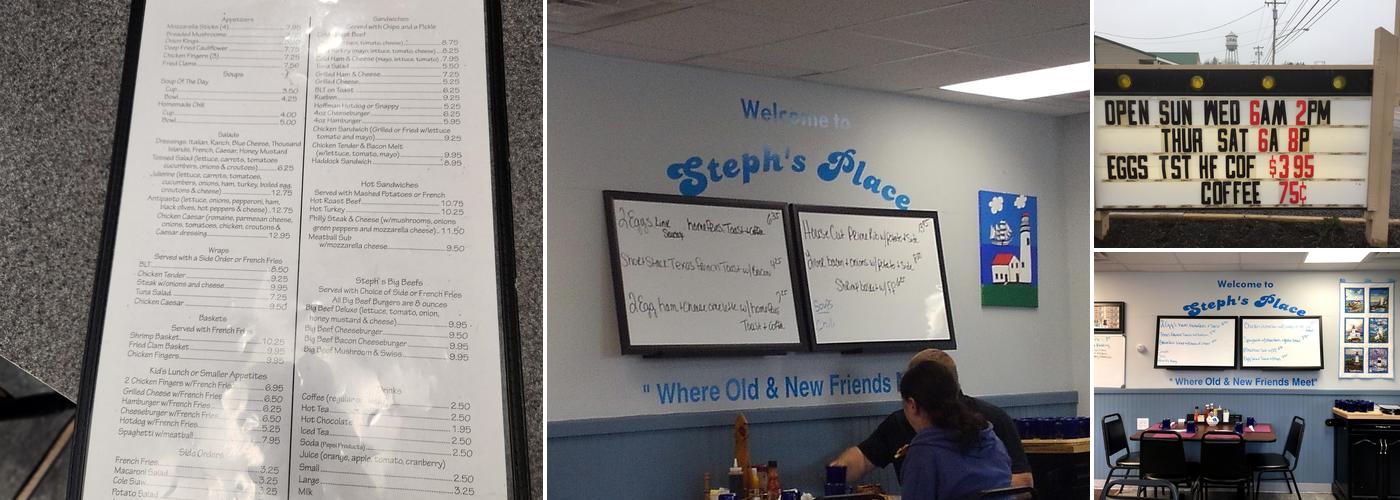 Appetizers
Mozzarella Sticks (4) 7.95
Breaded Mushrooms
Onion Rings
Deep Fried Cauliflower 7.75
Chicken Fingers (3) 7.25
Fried Clams 7.50
Soups
Soup Of The Day
Cup 3.50
Bowl 4.25
Homemade Chili
Cup 4.00
Bowl 5.00
Salads
Dressings: Italian, Ranch, Blue Cheese, Thousand
Islands, French, Caesar, Honey Mustard
Tossed Salad (lettuce, carrots, tomatoes
cucumbers, onions & croutons) 6.25
Julienne (lettuce, carrots, tomatoes,
cucumbers, onions, ham, turkey, boiled egg,
croutons & cheese) 12.75
Antipasto (lettuce, onions, pepperoni, ham,
black olives, hot peppers & cheese) 12.75
Chicken Caesar (romaine, parmesan cheese,
onions, tomatoes, chicken, croutons &
Caesar dressing 12.95
Wraps
Served with a Side Order or French Fries
BLT 8.50
Chicken Tender 9.25
Steak w/onions and cheese 9.95
Tuna Salad 7.25
Chicken Caesar 9.50
Baskets
Served with French Fries
Shrimp Basket 10.25
Fried Clam Basket 9.95
Chicken Fingers 9.95
Kid's Lunch or Smaller Appetites
2 Chicken Fingers w/French Fries 6.95
Grilled Cheese w/French Fries 6.50
Hamburger w/French Fries 6.25
Cheeseburger w/French Fries 6.50
Hotdog w/French Fries 5.25
Spaghetti w/meatball 7.95
Side Orders
French Fries 3.25
Macaroni Salad 3.25
Cole Slaw 3.25
Potato Salad
Sandwiches
Served with Chips and a Pickle
Beef
tomato, cheese) 8.75
(mayo, lettuce, tomato, cheese) 8.25
Ham & Cheese (mayo, lettuce, tomato) 7.95
Tuna Salad 5.50
Grilled Ham & Cheese 7.25
Grilled Cheese 5.25
BLT on Toast 6.25
Rueben 9.25
Hoffman Hotdog or Snappy 5.25
4oz Cheeseburger 6.25
4oz Hamburger 5.95
Chicken Sandwich (Grilled or Fried w/lettuce
tomato and mayo) 9.25
Chicken Tender & Bacon Melt
(w/lettuce, tomato, mayo) 9.95
Haddock Sandwich 8.95
Hot Sandwiches
Served with Mashed Potatoes or French
Hot Roast Beef 10.75
Hot Turkey 10.25
Philly Steak & Cheese (w/mushrooms, onions
green peppers and mozzarella cheese) 11.50
Meatball Sub
w/mozzarella cheese 9.50
Steph's Big Beefs
Served with Choice of Side or French Fries
All Big Beef Burgers are 8 ounces
Big Beef Deluxe (lettuce, tomato, onion,
honey mustard & cheese) 9.95
Big Beef Cheeseburger 9.50
Big Beef Bacon Cheeseburger 9.95
Big Beef Mushroom & Swiss 9.95
Drinks
Coffee (regular 2.50
Hot Tea 2.50
Hot Chocolate 1.95
Iced Tea 2.50
Soda (Pepsi Products) 2.50
Juice (orange, apple, tomato, cranberry)
Small 2.50
Large 3.25
Milk
Welcome to
Steph's Place
2 Eggs Link Sausage homefries Toast + Coffee
Short Stack Texas French Toast w/ Bacon
2 Egg ham + cheese omelette w/ homefries
Toast + Coffee
House Cut Prime Rib w/ potato + side
Liver bacon + onions w/ potato + side
Shrimp basket w/ FF
Soup
Chili
" Where Old & New Friends
OPEN SUN WED 6AM 2PM
THUR SAT 6A 8P
EGGS TST HF COF $3.95
COFFEE 75¢
Welcome to
Steph's Place
" Where Old & New Friends Meet"